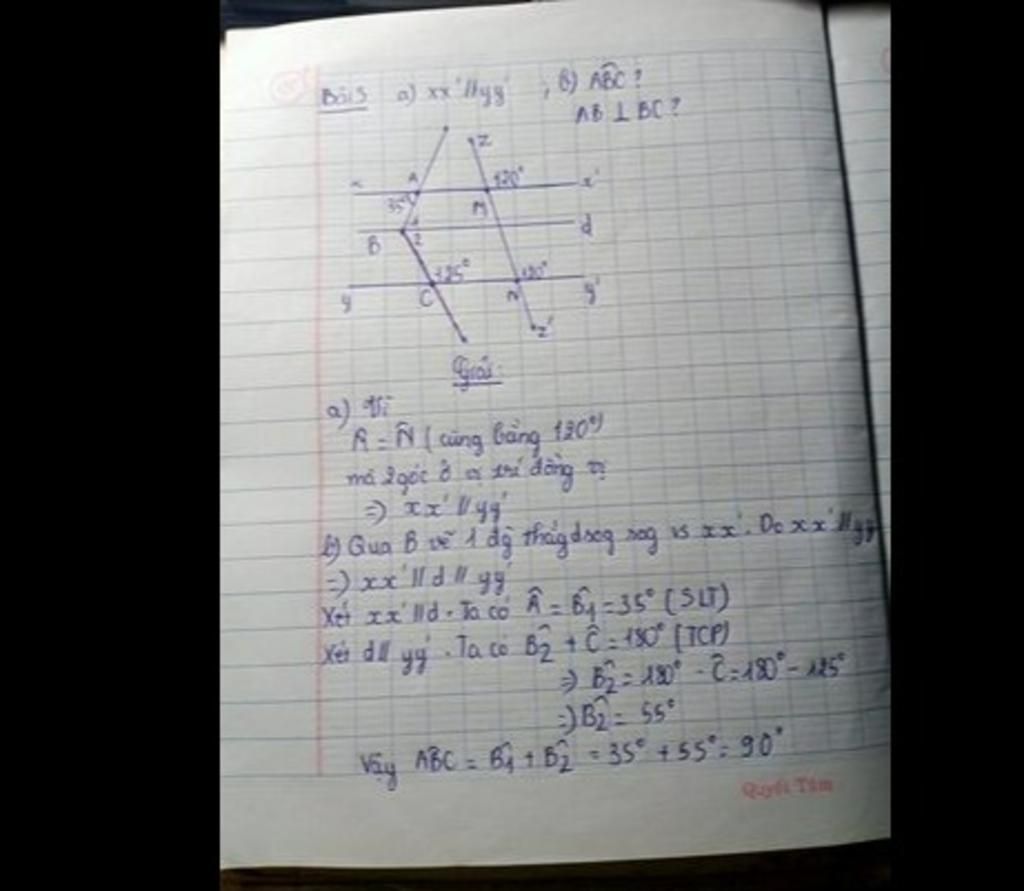 Bài 5 a) xx' // yy' , b) ABC ?
AB ⊥ BC ?
z
x A 120° x'
35° M
B 1 d
2
125° 120°
y C N y'
z'
Giải:
a) Vì
M̂ = N̂ (cùng bằng 120°)
mà 2 góc ở vị trí đồng vị
=) xx' // yy'
b) Qua B vẽ 1 đg thẳg d sog sog vs xx'. Do xx' // yy'
=) xx' // d // yy'
Xét xx' // d. Ta có Â = B̂1 = 35° (SLT)
Xét d // yy'. Ta có B̂2 + Ĉ = 180° (TCP)
=) B̂2 = 180° - Ĉ = 180° - 125°
=) B̂2 = 55°
Vậy ABC = B̂1 + B̂2 = 35° + 55° = 90°
Quyết Tâm